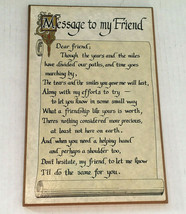 Message to my Friend
Dear friend;
Though the years and the miles
have divided our paths, and time goes
marching by,
The tears and the smiles you gave me will last,
Along with my efforts to try —
to let you know in some small way
What a friendship like yours is worth,
There's nothing considered more precious,
at least not here on earth.
And when you need a helping hand
and perhaps a shoulder too,
Don't hesitate, my friend, to let me know
I'll do the same for you..